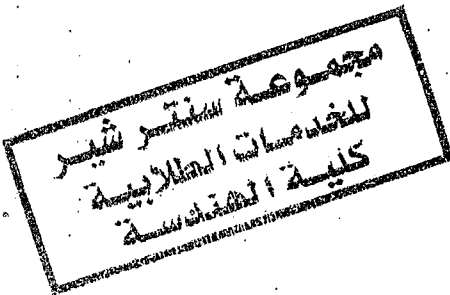 مجموعة سنتر شير
للخدمات الطلابية
كلية الهندسة